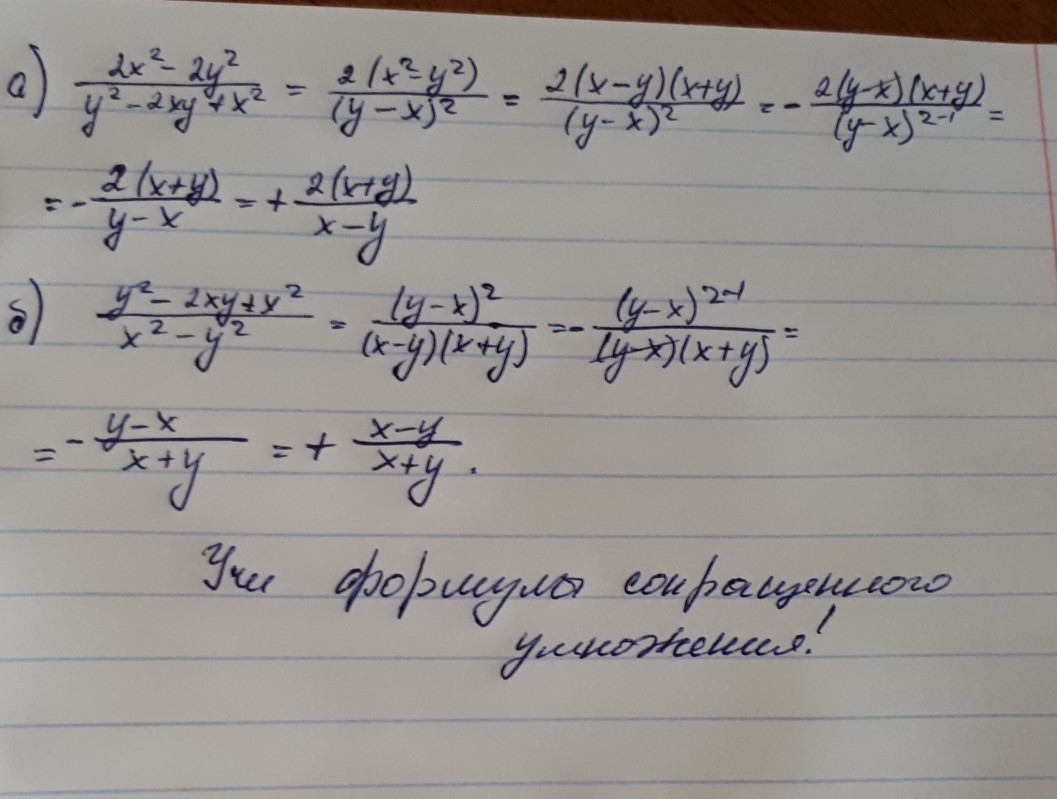 а) (2x² - 2y²)/(y² - 2xy + x²) = 2(x² - y²)/(y - x)² = 2(x-y)(x+y)/(y-x)² = - 2(y-x)(x+y)/(y-x)²⁻¹ =
= - 2(x+y)/(y-x) = + 2(x+y)/(x-y)
б) (y² - 2xy + x²)/(x² - y²) = (y-x)²/((x-y)(x+y)) = - (y-x)²⁻¹/((y-x)(x+y)) =
= - (y-x)/(x+y) = + (x-y)/(x+y).
Учи формулы сокращенного
умножения!